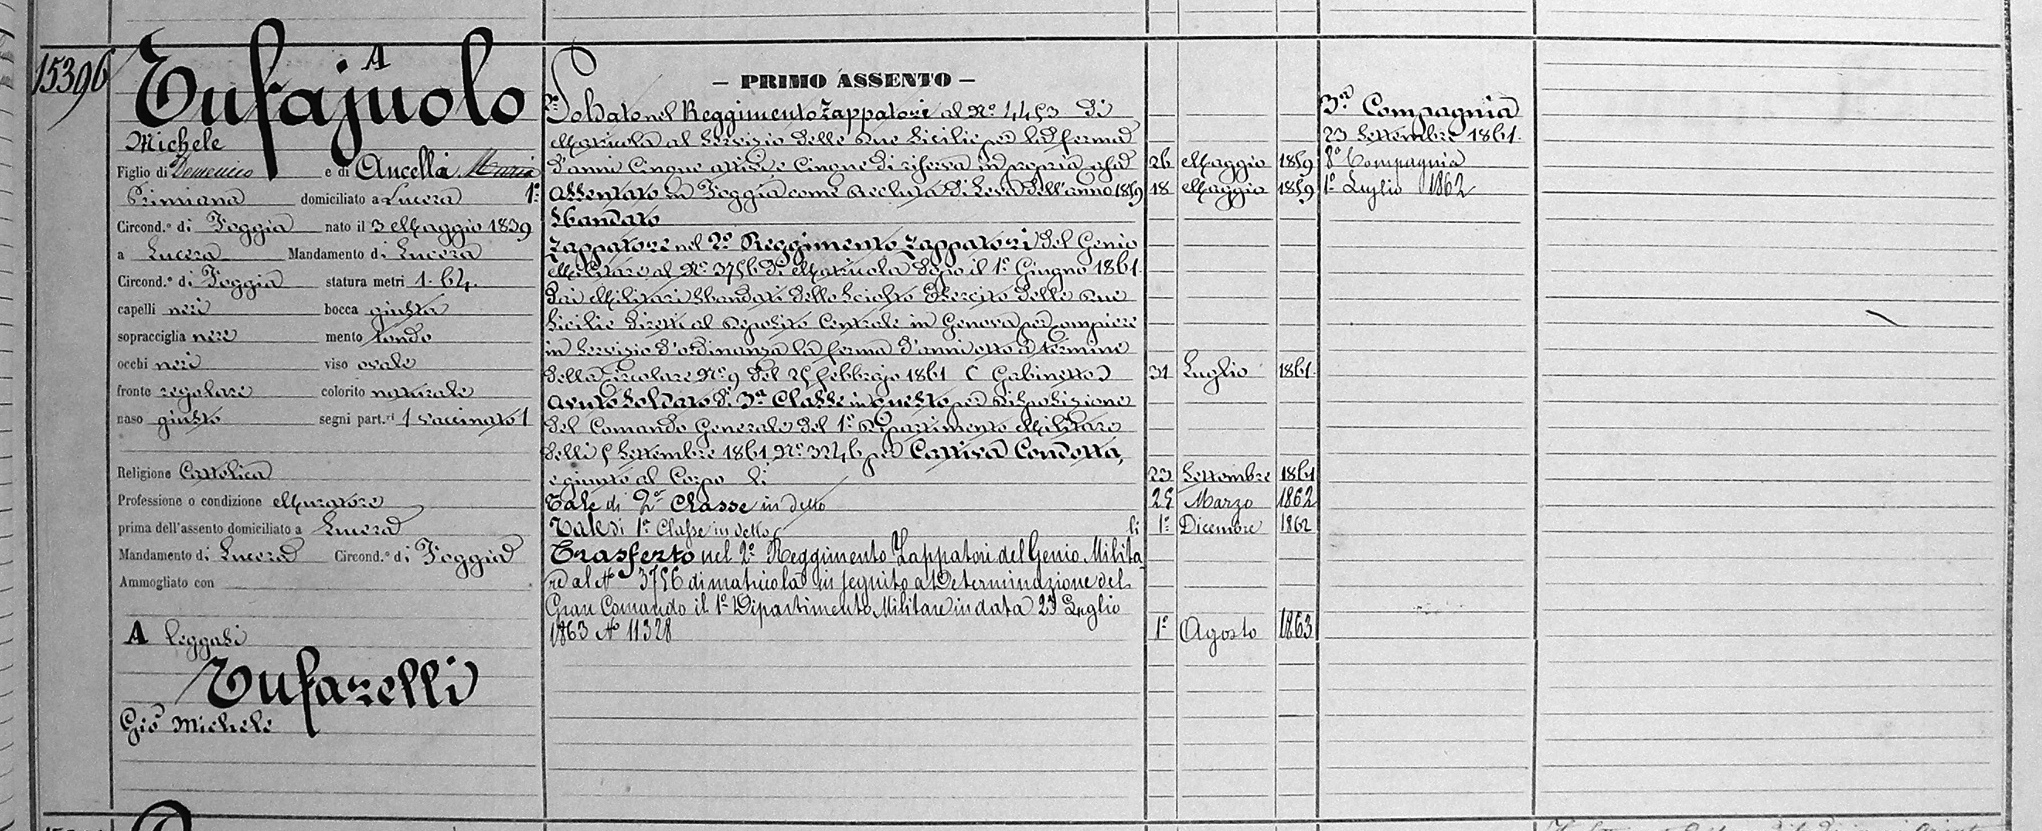 15396
A
Tufajuolo
Michele
Figlio di Domenico e di Aucella Maria
Primiana domiciliato a Lucera 1:
Circond.º di Foggia nato il 3 Maggio 1839
a Lucera Mandamento di Lucera
Circond.º di Foggia statura metri 1. 64.
capelli neri bocca giusta
sopracciglia nere mento tondo
occhi neri viso ovale
fronte regolare colorito naturale
naso giusto segni part.ri 1 vaccinato 1
Religione Cattolica
Professione o condizione Muratore
prima dell'assento domiciliato a Lucera
Mandamento di Lucera Circond.º di Foggia
Ammogliato con
A leggasi
Tufarelli
Gio Michele
— PRIMO ASSENTO —
Soldato nel Reggimento Zappatori al Nº 4453 di
Matricola al Servizio delle Due Sicilie per la ferma
d'anni Cinque attivi e Cinque di riserva in propria 26 Maggio 1859
assentato in Foggia come Recluta di Leva dell'anno 1859 18 Maggio 1859
Sbandato
Zappatore nel 2º Reggimento Zappatori del Genio
Militare al Nº 3756 di Matricola dopo il 1º Giugno 1861
dai Militari Sbandati dello Sciolto Esercito delle Due
Sicilie diretti al Deposito Centrale in Genova per compiere
in Servizio d'ordinanza la ferma d'anni otto a termine
della Circolare Nº 9 del 25 Febbrajo 1861 ( Gabinetto ) 31 Luglio 1861
Avuto Soldato di 3ª Classe in questo per disposizione
del Comando Generale del 1º Dipartimento Militare
delli 5 Settembre 1861 Nº 3246 per Cattiva Condotta,
e giunto al Corpo li 23 Settembre 1861
Tale di 2ª Classe in detto 25 Marzo 1862
Tale di 1ª Classe in detto li 1º Dicembre 1862
Trasferto nel 2º Reggimento Zappatori del Genio Milita-
re al Nº 3756 di matricola in seguito a Determinazione del
Gran Comando il 1º Dipartimento Militare in data 23 Luglio
1863 Nº 11328 1º Agosto 1863
3ª Compagnia
23 Settembre 1861
8ª Compagnia
1º Luglio 1862